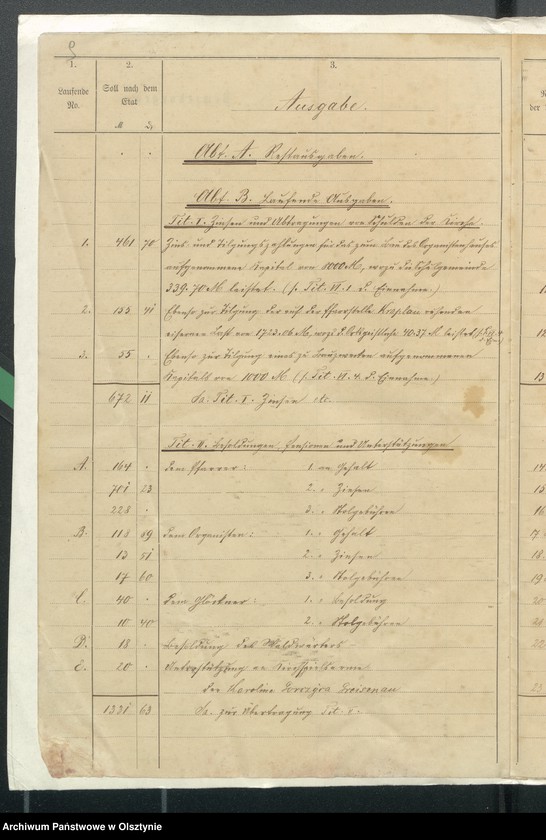 1. 2. 3.
Laufende No.
Soll nach dem Etat
M
Ausgabe.
Abt. A. Restausgaben.
Abt. B. Laufende Ausgaben.
Tit. I. Zinsen und Abtragungen von Schulden der Kirche.
1. 461 70 Zins- und Tilgungszahlungen für das zum Bau des Organistenhauses
aufgenommene Kapital von 8000 M, wozu die Schulgemeinde
339.70 M leistet. (s. Tit. VI. 1. d. Einnahme.)
2. 155 41 Ebenso zur Tilgung der auf der Pfarrstelle Kraplau ruhenden
eisernen Last von
3. 55 . Ebenso zur Tilgung eines zu Bauzwecken aufgenommenen
Kapitals von 1000 M (s. Tit. VI. 4. d. Einnahme.)
672 11 Sa. Tit. I. Zinsen etc.
Tit. II. Besoldungen, Pensionen und Unterstützungen
A. 164 . dem Pfarrer: 1. an Gehalt
701 23 2. " Zinsen
228 . 3. " Stolgebühren
B. 118 89 dem Organisten: 1. " Gehalt
13 51 2. " Zinsen
17 60 3. " Stolgebühren
C. 40 . dem Glöckner: 1. " Besoldung
10 40 2. " Stolgebühren
D. 18 . Besoldung des Waldwärters
E. 20 . Unterstützung an Kirchspielsarme
der Karoline
1331 63 Sa. zur Übertragung Tit. II.
Archiwum Państwowe w Olsztynie